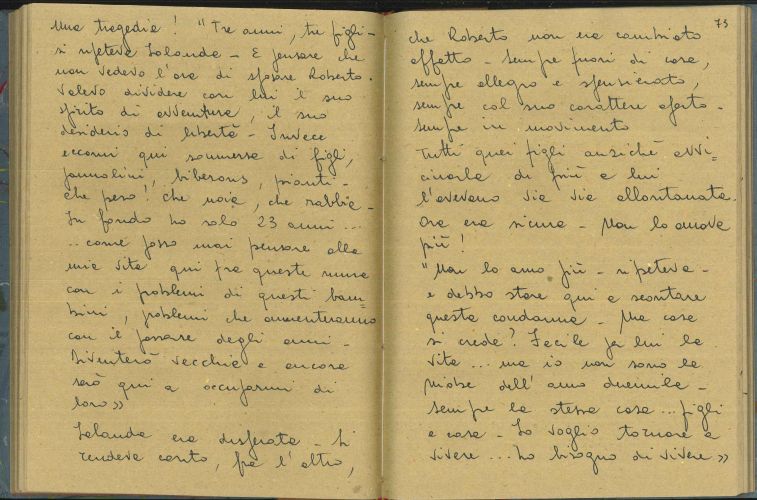 Una tragedia! "Tre anni, tre figli -
si ripeteva Jolanda - E pensare che
non vedevo l'ora di sposare Roberto.
Volevo dividere con lui il suo
spirito di avventura, il suo
desiderio di libertà - Invece
eccomi qui sommersa di figli,
pannolini, biberons, pianti -
che peso! che noia, che rabbia -
In fondo ho solo 23 anni ...
.. come posso mai pensare alla
mia vita qui fra queste mura
con i problemi di questi bam=
bini, problemi che aumenteranno
con il passare degli anni -
Diventerò vecchia e ancora
sarò qui a occuparmi di
loro»
Jolanda era disperata - Si
rendeva conto, fra l'altro,
73
che Roberto non era cambiato
affatto - Sempre fuori di casa,
sempre allegro e spensierato,
sempre col suo carattere aperto -
sempre in movimento
Tutti quei figli anziché avvi=
cinarla di più a lui
l'avevano via via allontanata.
Ora era sicura - Non lo amava
più!
"Non lo amo più - ripeteva -
e debbo stare qui a scontare
questa condanna - Ma cosa
si crede? Facile per lui la
vita ... ma io non sono la
moglie dell'anno duemila -
Sempre la stessa cosa ... figli
e casa - Io voglio tornare a
vivere ... ho bisogno di vivere»